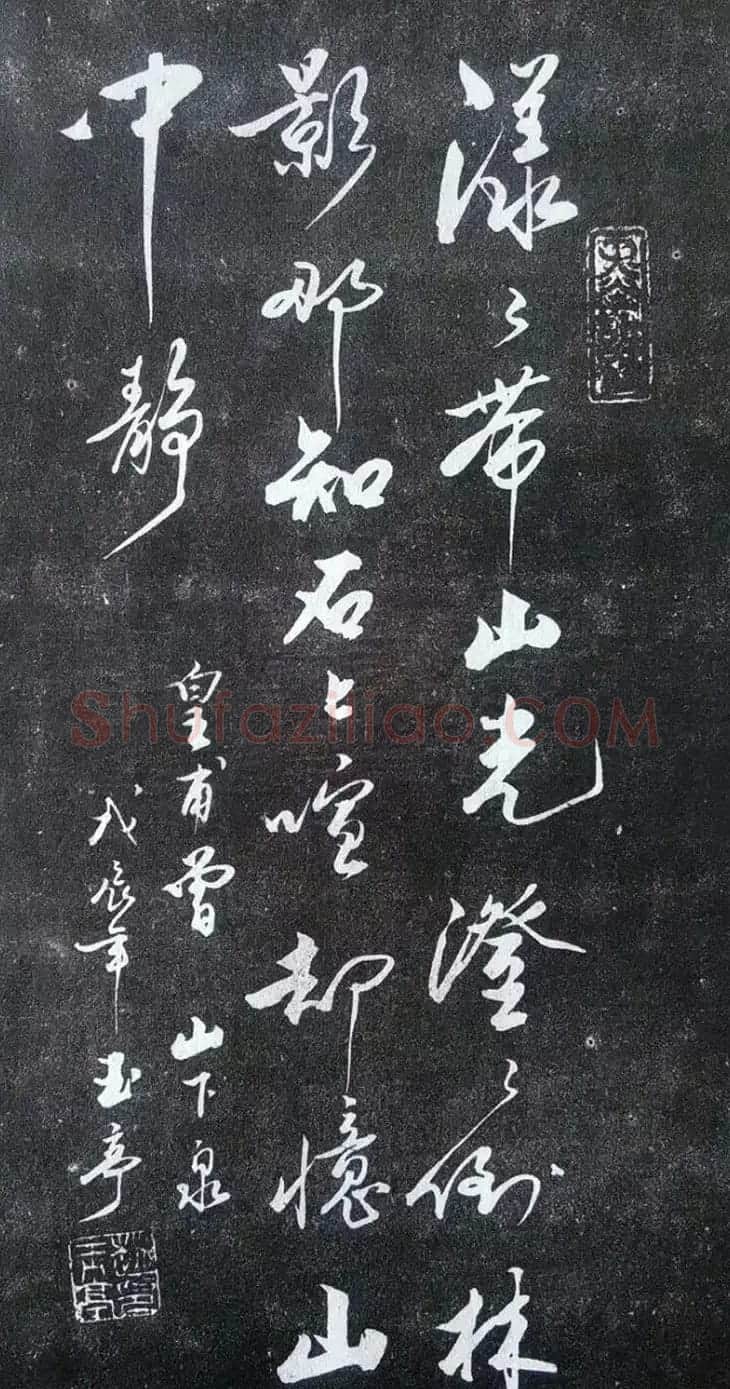 漾々帶山光澄々倒林
影那知石上喧却憶山
中靜
皇甫曾 山下泉
戊辰年玉亭
Shufaziliao.COM